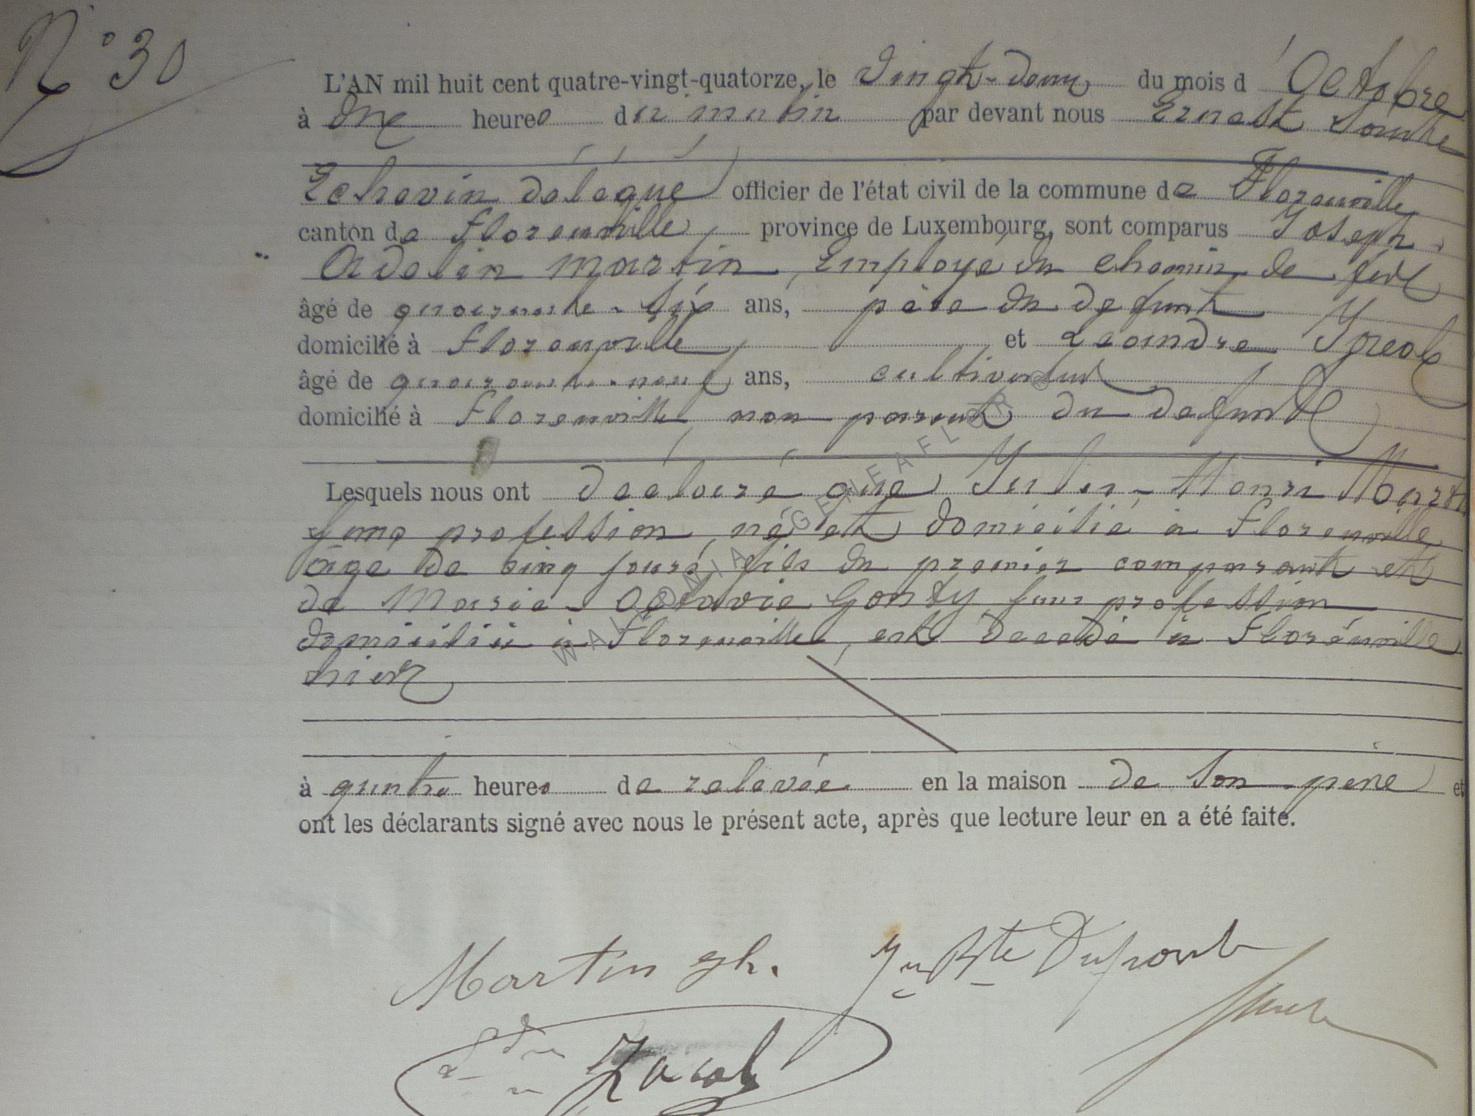 N° 30
L'AN mil huit cent quatre-vingt-quatorze, le vingt-deux du mois d'Octobre
à onze heures du matin par devant nous Ernest
Echevin délégué officier de l'état civil de la commune de Florenville
canton de Florenville, province de Luxembourg, sont comparus Joseph
Adelin Martin, Employé du chemin de fer
âgé de quarante-six ans, père du defunt
domicilié à Florenville, et Léandre
âgé de quarante-neuf ans, cultivateur
domicilié à Florenville, non parent du defunt
Lesquels nous ont déclaré que Jules-Henri Martin
sans profession, né et domicilié à Florenville
âge de cinq jours, fils du premier comparant et
de Marie-Octavie Gonry sans profession
domiciliée à Florenville, est décédé à Florenville
hier
à quatre heures de relevée en la maison de son père et
ont les déclarants signé avec nous le présent acte, après que lecture leur en a été faite.
Martin Jh. Jn Bte Dupont
Jacob
WALLONIA GENEAFLOR ©